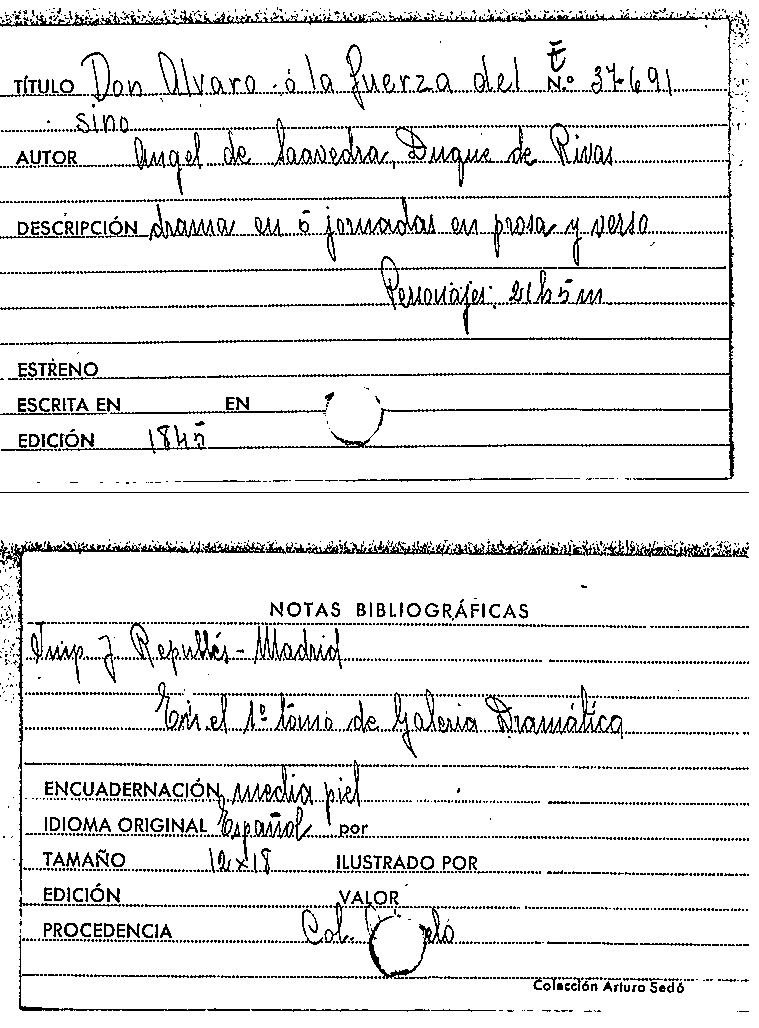 TÍTULO Don Alvaro ó la fuerza del N.º 37-691
sino
AUTOR Angel de Saavedra, Duque de Rivas
DESCRIPCIÓN drama en 5 jornadas en prosa y verso
Personajes: 21h5m
ESTRENO
ESCRITA EN EN
EDICIÓN 1845
NOTAS BIBLIOGRÁFICAS
Imp J Repullés - Madrid
En el 1º tomo de Galeria Dramática
ENCUADERNACIÓN media piel
IDIOMA ORIGINAL Español por
TAMAÑO 12x18 ILUSTRADO POR
EDICIÓN VALOR
PROCEDENCIA Col.
Colección Arturo Sedó